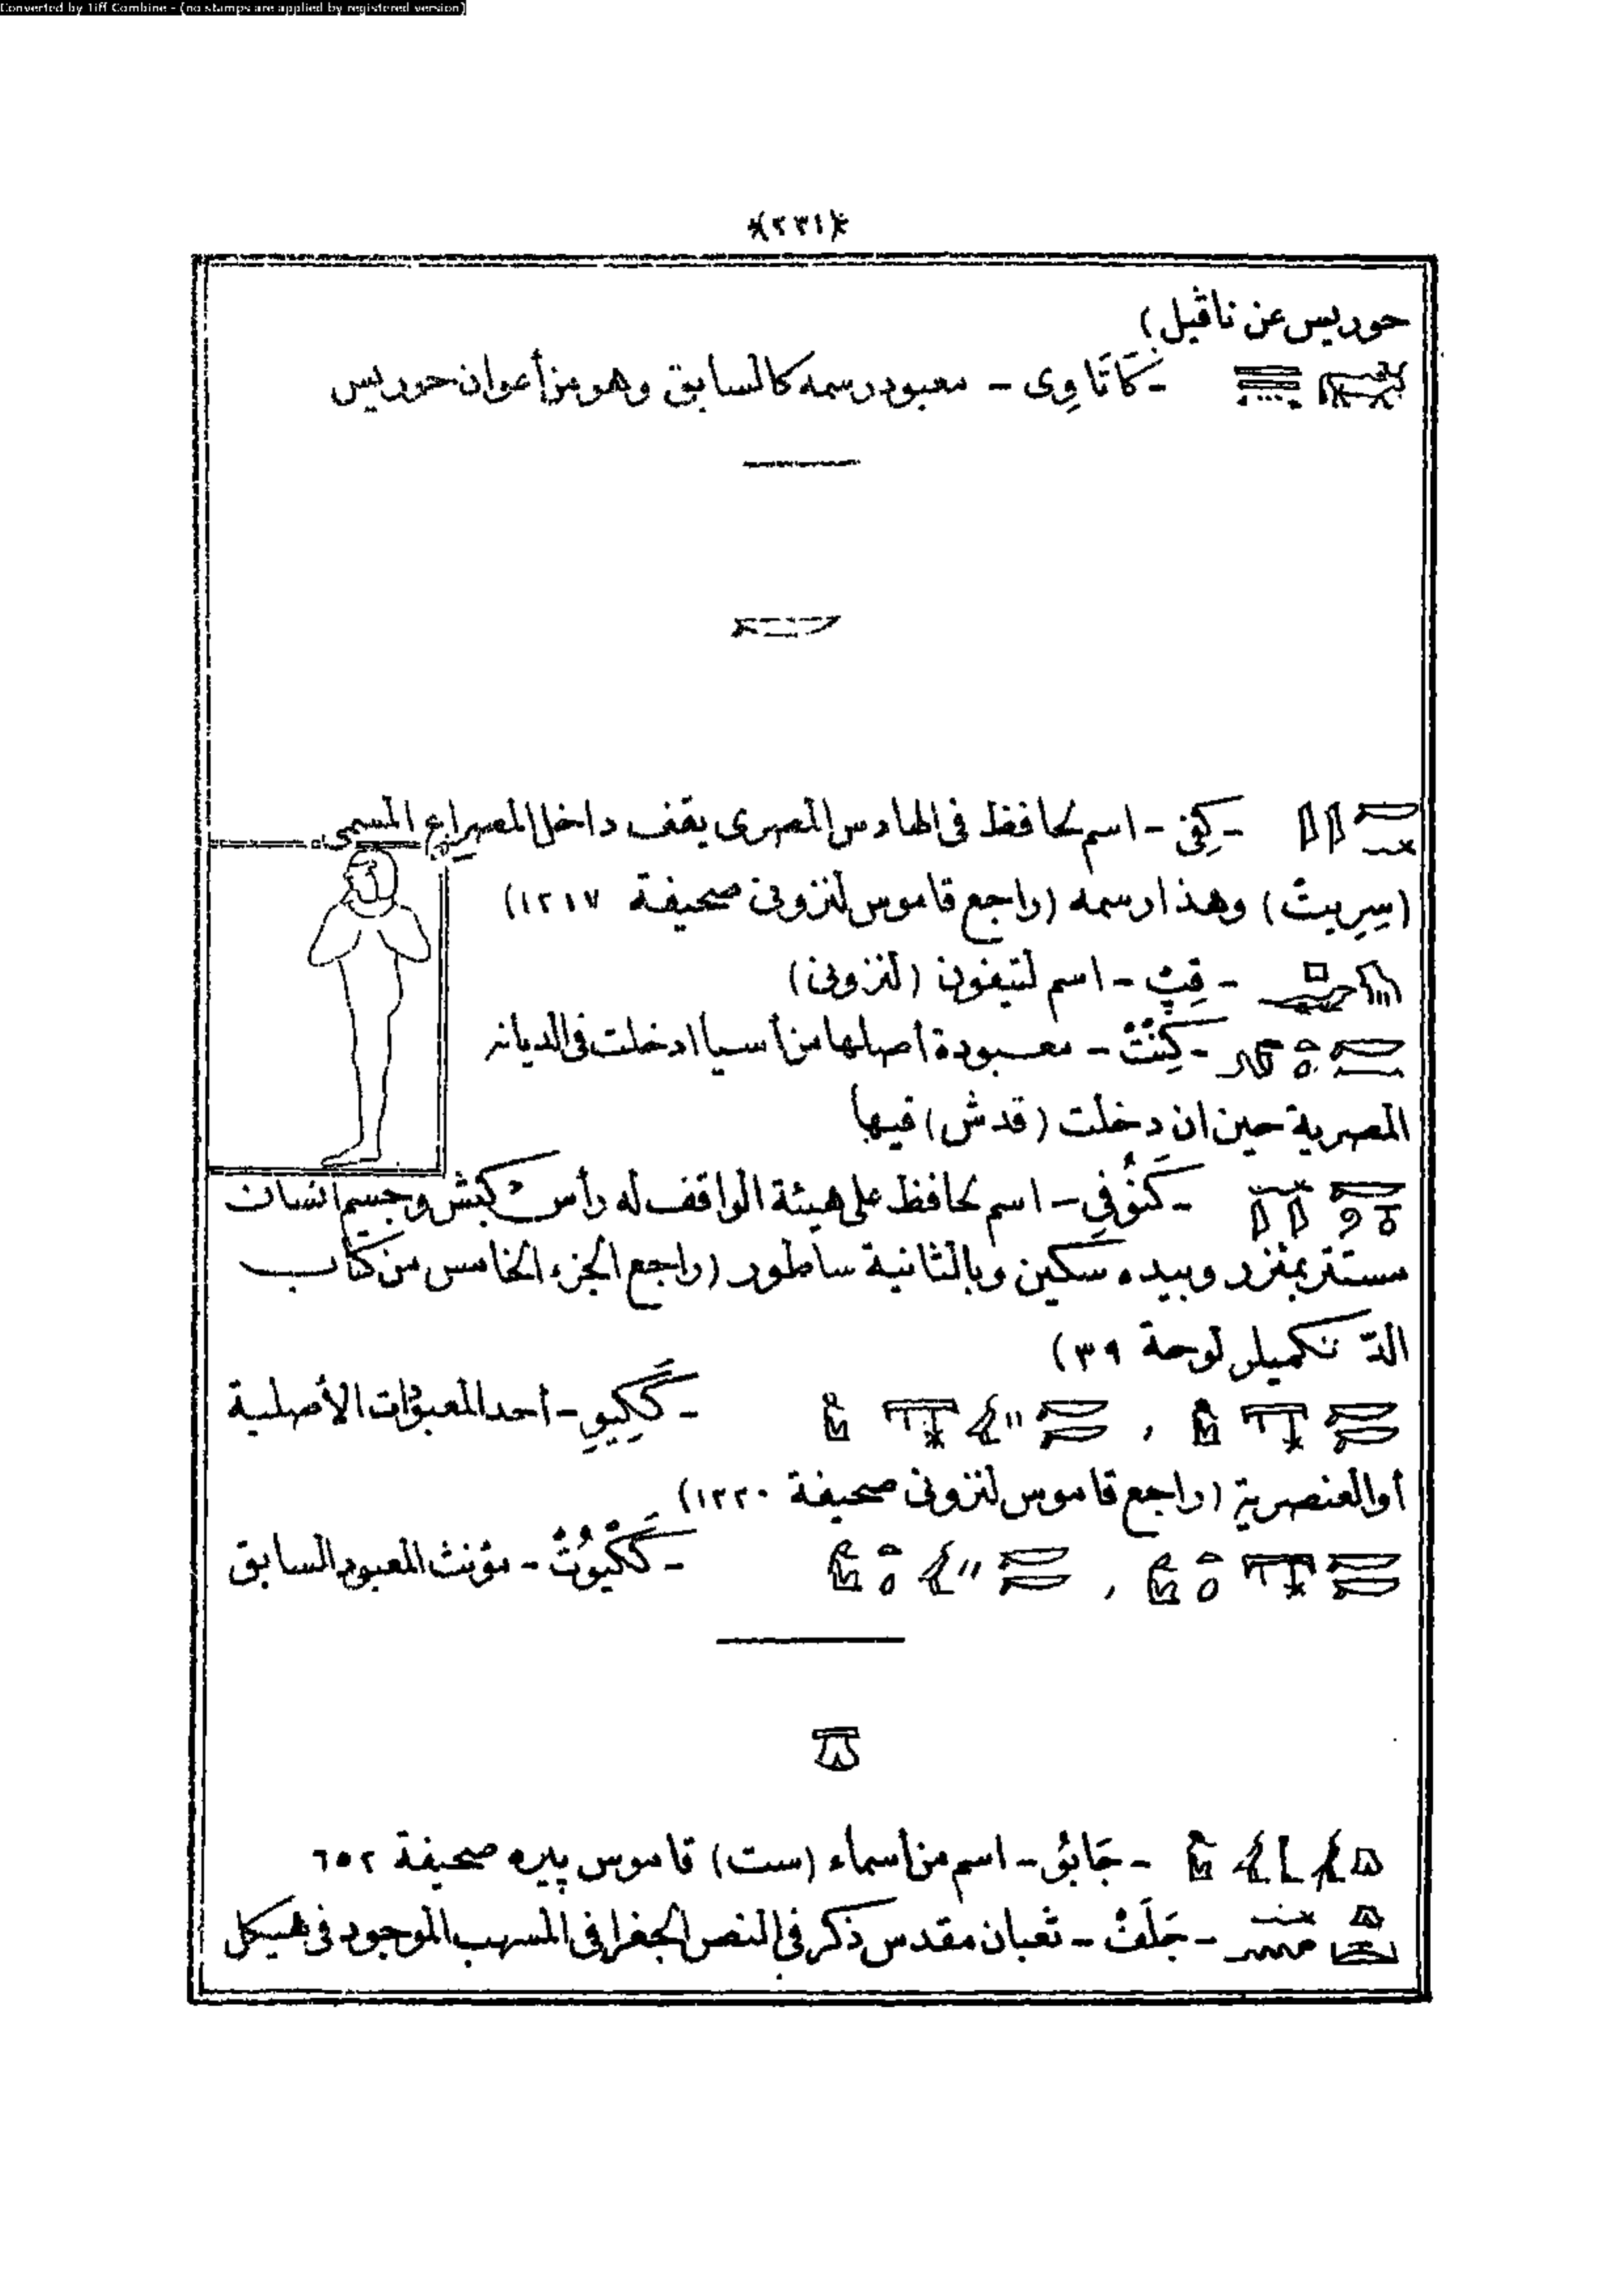 Converted by Tiff Combine - (no stamps are applied by registered version)
*(٢٣١)*
حوريس عن ناڤيل)
- كَاتَاوِى - معبود رسمه كالسابق وهو من أعوان حوريس
- كِفِى - اسم لحافظ فى الهادس المصرى يقف داخل المصراع المسمى
(سِرِيتْ) وهذا رسمه (راجع قاموس لنزونى صحيفة ١٢١٧)
- قِبْ - اسم لتيفون (لنزونى)
- كِنْتْ - معبودة أصلها من أسيا ادخلت فى الديانة
المصرية حين ان دخلت (قدش) فيها
- كَنُوفِى - اسم لحافظ على هيئة الواقف له رأس كبش وجسم انسان
مستتر بمئزر وبيده سكين وبالثانية ساطور (راجع الجزء الخامس من كتاب
الدّ نكميلر لوحة ٣٩)
- كَكِيوِ - أحد المعبودات الأصلية
أو العنصرية (راجع قاموس لنزونى صحيفة ١٢٢٠)
- كَكْيُوتْ - مؤنث المعبود السابق
- جَابُو - اسم من أسماء (ست) قاموس پيره صحيفة ٦٥٢
- جَلَفْ - ثعبان مقدس ذكر فى النص الجغرافى المسهب الموجود فى هيكل